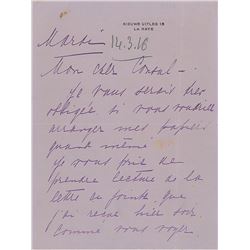 NIEUWE UITLEG 16
LA HAYE
Mardi 14.3.16
Mon cher Consul –
Je vous serais très
obligée si vous voudriez
arranger mes papiers
quand même
Je vous prie de
prendre lecture de la
lettre ci jointe que
j'ai reçue hier soir.
Comme vous voyez